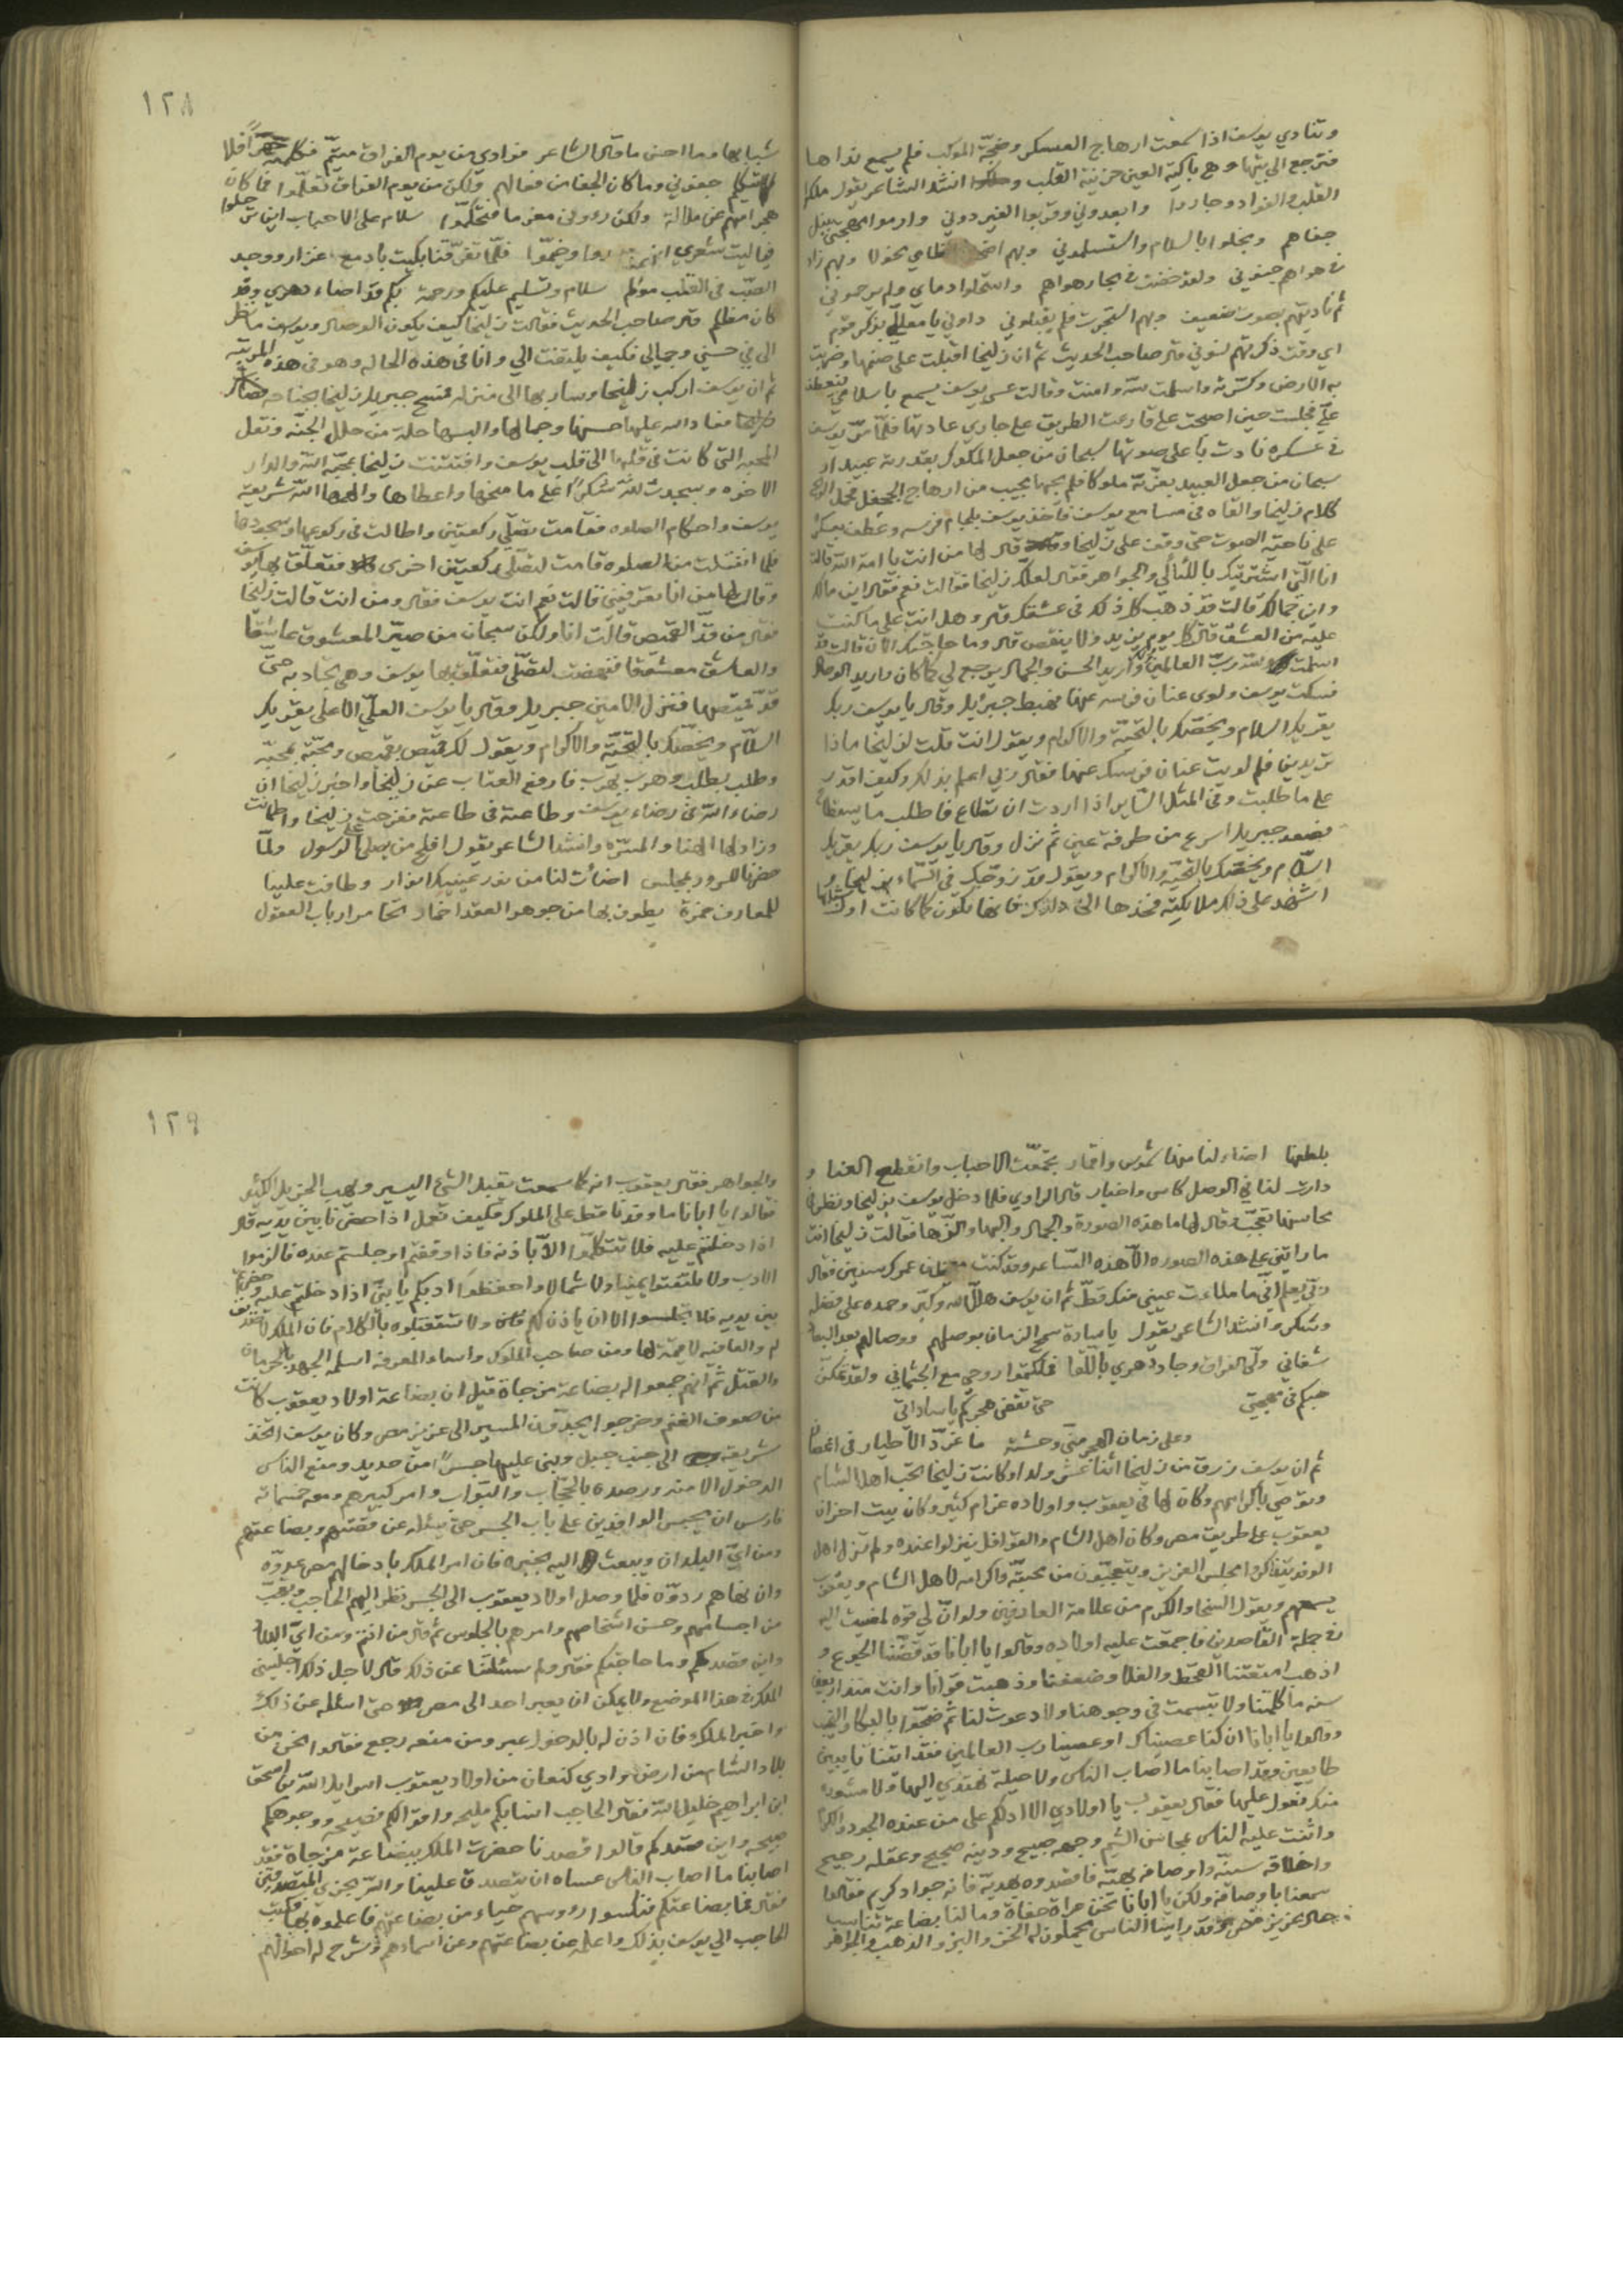 وتنادي يوسف اذا سمعت ارهاج العسكر وضجّة الموكب فلم يسمع نداها
فترجع الى بيتها وهي باكية العين حزينة القلب انشد الشاعر يقول ملكوا
القلب والفؤاد وجاروا وابعدوني وقربوا الغير دوني وارموا مهجتي بنبل
جفاهم وبخلوا بالسلام واستسلموني وبهم عظامي نحولا وبهم زاد
في هواهم جنوني ولقد خضت في بحار هواهم واستحلوا دماي ولم يرحموني
ثم ناديتهم بصوت ضعيف وبهم استجرت فلم يقبلوني داوني يا معللي بذكر قوم
اي وقت ذكرتهم لسوني قال صاحب الحديث ثم ان زليخا اقبلت على صنمها وضربت
به الارض وكسرته واسلمت لله وامنت وقالت عسى يوسف يسمع باسلامي فيعطف
عليّ فجلست حين اصبحت على قارعت الطريق على جاري عادتها فلما مرّ يوسف
في عسكره نادت باعلى صوتها سبحان من جعل الملوك بقدرته عبيد او
سبحان من جعل العبيد بعزّته ملوكا فلم يجبها مجيب من ارهاج الجحفل فحمل الريح
كلام زليخا والقاه في مسامع يوسف فاخذ يوسف بلجام فرسه وعطف بعسكره
على ناحية الصوت حتى وقف على زليخا قال لها من انت يا امة الله قالت
انا الّتي اشتريتك باللئالي والجواهر فقال لعلّك زليخا فقالت نعم فقال اين مالك
واين جمالك قالت قد ذهب كل ذلك في عشقك قال وهل انت على ما كنت
عليه من العشق قالت كل يوم يزيد ولا ينقص قال وما حاجتك الان قالت قد
اسلمت لله ربّ العالمين واريد الحسن والجمال يرجع لي كما كان واريد الوصال
فسكت يوسف ولوى عنان فرسه عنها فهبط جبريل وقال يا يوسف ربك
يقريك السلام ويخصّك بالتحيّة والاكرام ويقول انت قلت لزليخا ماذا
تريدين فلم لويت عنان فرسك عنها فقال ربي اعلم بذلك وكيف اقدر
على ما طلبت وفي المثل السّاير اذا اردت ان تطاع فاطلب ما يستطاع
فصعد جبريل اسرع من طرفة عين ثم نزل وقال يا يوسف ربك يقريك
السّلام ويخصّك بالتحيّة والاكرام ويقول قد زوّجتك في السّماء بزليخا و
اشهد على ذلك ملايكته فخذها اليك فانها تكون كما كانت اول
١٢٨
شبابها وما احسن ما قال الشاعر فوادي من يوم الفراق متيّم
جفوني وما كان الجفا من فعالهم ولكن من يوم الفراق تعلّموا فما كان
هجرانهم عن ملالة ولكن رووني مغرما فتحكّموا سلام على الاحباب اين ترحلوا
فياليت شعري اين وخيّموا فلمّا تفرّقنا بكيت بادمع غزار ووجد
الصّب في القلب مولم سلام وتسليم عليكم ورحمة بكم قد اضاء دهري وقد
كان مظلم قال صاحب الحديث فقالت زليخا كيف يكون الوصال ويوسف ما نظر
الي في حسني وجمالي فكيف يلتفت الي وانا في هذه الحاله وهو في هذه المرتبة
ثم ان يوسف اركب زليخا وسار بها الى منزله فمسح جبريل زليخا بجناحه
فعاد الله عليها حسنها وجمالها والبسها حلة من حلل الجنّه ونقل
المحبه التي كانت في قلبها الى قلب يوسف وافتتنت زليخا بمحبّة الله والدار
الاخره وسجدت لله شكراً على ما منحها واعطاها والهمها الله شريعة
يوسف واحكام الصلوه فقامت تصلّي ركعتين واطالت في ركوعها وسجودها
فلما انفتلت من الصلوه قامت لتصلّي ركعتين اخرى فتعلّق بها يوسف
وقال لها من انا تعرفيني قالت نعم انت يوسف فقال ومن انت قالت زليخا
فقال من قدّ القميص قالت انا ولكن سبحان من صيّر المعشوق عاشقا
والعاشق معشوقا فنهضت لتصلّي فتعلّق بها يوسف وهي تجاذبه حتّى
قدّ قميصها فنزل الامين جبريل وقال يا يوسف العليّ الاعلى يقريك
السّلام ويخصّك بالتّحيّة والاكرام ويقول لك قميص بقميص ومحبّة بمحبّة
وطلب بطلب وهرب بهرب فارفع العتاب عن زليخا واخبر زليخا ان
رضاء الله في رضاء يوسف وطاعته في طاعته ففرحت زليخا واطمانت
وزاد لها الهنا والمسرّه وانشد الشاعر يقول افلح من يصلي على الرسول ولمّا
حضرنا للسرور بمجلس اضائت لنا من نور غيبك انوار وطافت علينا
للمعارف خمرة يطوف بها من جوهر العقد اخمار اتخامر ارباب العقول
بلطفها اضاء لنا منها شموس واقمار تجمّعت الاحباب وانقطع العنا و
دارت لنا في الوصل كاس واخبار قال الراوي فلما دخل يوسف بزليخا ونظر في
محاسنها تعجّب قال لها ما هذه الصورة والجمال والبهاء فقالت زليخا انت
ما راتني على هذه الصوره الّا هذه السّاعه وقد كنت عمرك سنين فقال
ربّي يعلم انّي ما ملات عيني منك قطّ ثم ان يوسف هلّل الله وكبّر وحمده على فضله
وشكر وانشد الشاعر يقول يا سادة سمح الزمان بوصلهم ووصالهم بعد البعاد
شفاني ولّى الفراق وجاد دهري باللّقا فملكتموا روحي مع الجثماني ولقد تمكّن
حبكم في مهجتي حتى تقضى هجركم يا ساداتي
وعلى زمان الهجر منّي وحشة ما غرّد الاطيار في اغصان
ثم ان يوسف رزق من زليخا اثنا عشر ولدا وكانت زليخا تحب اهل الشام
وتوصي باكرامهم وكان لها في يعقوب واولاده غرام كثير وكان بيت احزان
يعقوب على طريق مصر وكان اهل الشام والقوافل ينزلوا عنده ولم تزل اهل
الوفد يتذاكروا مجلس العزيز ويتعجّبون من محبّته واكرامه لاهل الشام ويعقوب
يسمعهم ويقول السخا والكرم من علامة العارفين ولو انّ لي قوه لمضيت اليه
في جملة القاصدين فاجمعت عليه اولاده وقالوا يا ابانا قد قصّنا الجوع و
اذهب امتعتنا القحط والغلا وضعفنا وذهبت قوانا وانت منذ اربعين
سنه ما كلمتنا ولا تبسمت في وجوهنا ولا دعوت لنا ثم ضجّوا بالبكا والنحيب
وقالوا يا ابانا ان كنا عصيناك او عصينا رب العالمين فقد اتينا تايبين
طايعين وقد اصابنا ما اصاب الناس ولا حيلة نهتدي اليها ولا مشوره
منك نعول عليها فقال يعقوب يا اولادي الا ادلكم على من عنده الجود والكرم
واثنت عليه الناس بمحاسن الشيم وجهه صبيح ودينه صحيح وعقله رجيح
واخلاقه سنيّه واوصافه بهيّه فاقصدوه بهديّة فانه جواد كريم فقالوا
سمعنا باوصافه ولكن يا ابانا نحن عراة حفاة وما لنا بضاعة تناسب
حال عزيز مصر وقد راينا الناس يحملون له الخز والبز والذهب والجواهر
١٢٩
والجواهر فقال يعقوب انه كما سمعت يقبل الشيء اليسير ويهب الجزيل الكثير
فقالوا يا ابانا ما وفدنا قط على الملوك فكيف نعمل اذا حضرنا بين يديه قال
اذا دخلتم عليه فلا تتكلموا الّا باذنه فاذا وقفتم او جلستم عنده فالزموا
الادب ولا تلتفتوا يمينا ولا شمالا واحفظوا ادبكم يا بنيّ اذا دخلتم عليه وحضرتم
بين يديه فلا تجلسوا الا ان ياذن لكم ولا تستقبلوه بالكلام فان الملك لا
لم والعافيه لا قيمة لها ومن صاحب الملوك واساء المعرفه اسلمه الجهد بالحرمان
والقتل ثم انهم جمعوا له بضاعة مزجاة قيل ان بضاعة اولاد يعقوب كانت
من صوف الغنم وخرجوا يجدّون المسير الى عزيز مصر وكان يوسف اتخذ
شريعة الى جنب جبل وبنى عليها جسراً من حديد ومنع الناس
الدخول الا منه ورصده بالحجّاب والنوّاب وامر كبيرهم ومعه خمسمائة
فارس ان يحبس الوافدين على باب الجسر حتى يسئله عن قصّتهم وبضاعتهم
ومن ايّ البلدان ويبعث اليه بخبره فان امر الملك بادخالهم مصر عدوّه
وان نهاهم ردوّه فلما وصل اولاد يعقوب الى الجسر نظر اليهم الحاجب وتعجّب
من اجسامهم وحسن اشخاصهم وامرهم بالجلوس ثم قال من انتم ومن ايّ البلاد
واين قصدكم وما حاجتكم فقالوا ولم سئلتنا عن ذلك قال لاجل ذلك اجلسني
الملك في هذا الموضع ولا يمكن ان يعبر احد الى مصر حتى اسئله عن ذلك
واخبر الملك فان اذن له بالدخول عبر ومن منعه رجع فقالوا نحن من
بلاد الشام من ارض وادي كنعان من اولاد يعقوب اسرايل الله بن اسحق
ابن ابراهيم خليل الله فقال الحاجب انسابكم مليحه واقوالكم فصيحه ووجوهكم
صبيحه واين مقصدكم قالوا قصدنا حضرت الملك ببضاعة مزجاة فقد
اصابنا ما اصاب الناس عساه ان يتصدق علينا والله يجزي المتصدقين
فقال فما بضاعتكم فنكسوا رووسهم حياء من بضاعتهم فاعلموه بها فكتب
الحاجب الى يوسف بذلك واعلمه عن بضاعتهم وعن اسمائهم وشرح له احوالهم